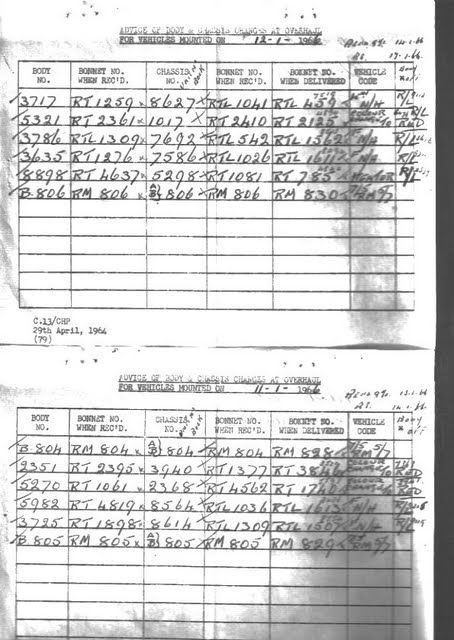 ADVICE OF BODY & CHASSIS CHANGES AT OVERHAUL
FOR VEHICLES MOUNTED ON 12-1-1966
17-1-66.
BODY NO. BONNET NO. WHEN REC'D. CHASSIS NO. BONNET NO. WHEN REC'D. BONNET NO. WHEN DELIVERED VEHICLE CODE
3717 RT 1259 8627 RTL 1041 RTL 459 N/H
5321 RT 2361 1017 RT 2410 RT 2125 COLOUR
3786 RTL 1309 7692 RTL 542 RTL 1562 N/H
3635 RT 1276 7586 RTL 1026 RTL 1611 N/H
8898 RT 4637 5298 RT 1081 RT 785
B.806 RM 806 A/B} 806 RM 806 RM 830
C.13/CHP
29th April, 1964
(79)
ADVICE OF BODY & CHASSIS CHANGES AT OVERHAUL
FOR VEHICLES MOUNTED ON 11-1-1966
BODY NO. BONNET NO. WHEN REC'D. CHASSIS NO. BONNET NO. WHEN REC'D. BONNET NO. WHEN DELIVERED VEHICLE CODE
B.804 RM 804 A/B} 804 RM 804 RM 828
2351 RT 2395 3940 RT 1377 RT 3846 COLOUR
5270 RT 1061 2368 RT 4562 COLOUR
5982 RT 4819 8564 RTL 1036 RTL 1613 N/H
3725 RT 1898 8614 RTL 1309 N/H
B.805 RM 805 A/B} 805 RM 805 RM 829